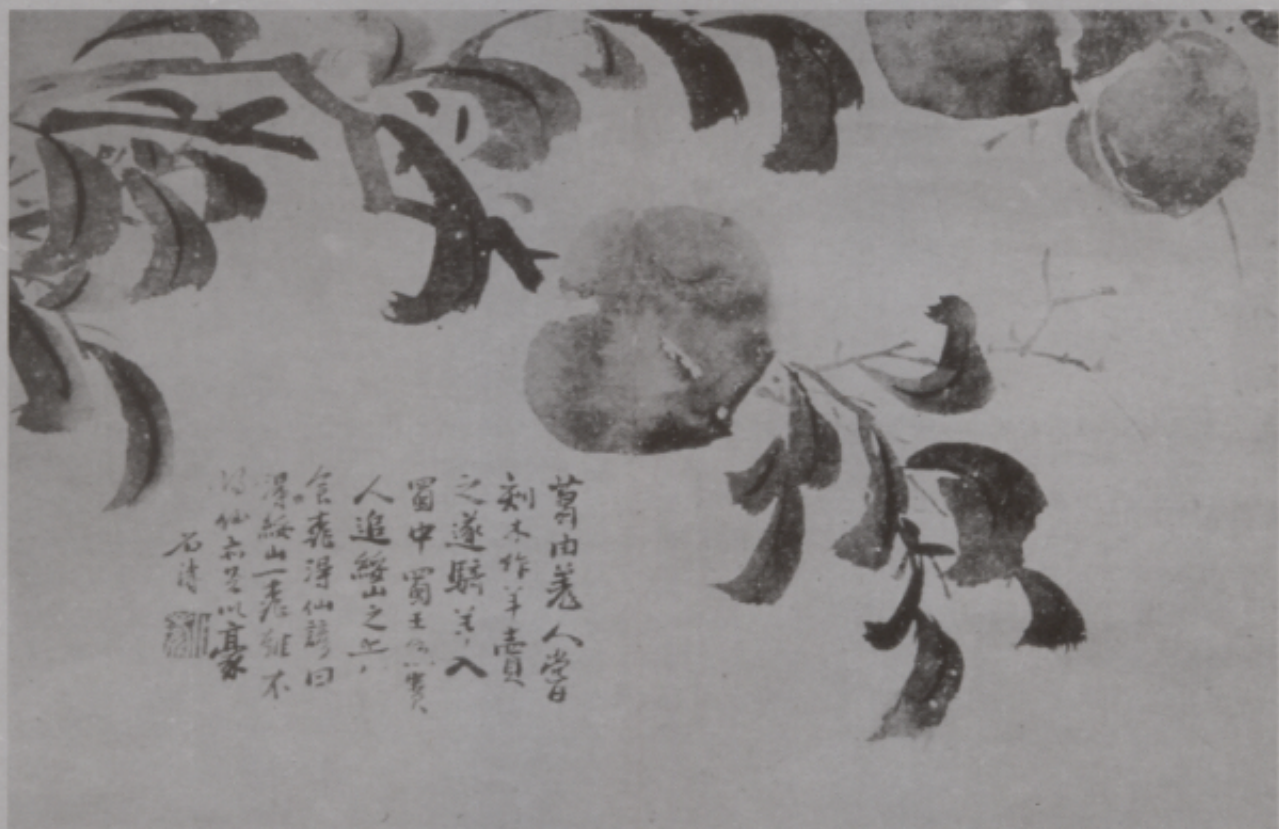 葛由羌人嘗
刻木作羊賣
之遂騎羊入
蜀中蜀王公貴
人追綏山之上
食桃得仙諺曰
得綏山一桃雖不
得仙亦足以豪
石濤